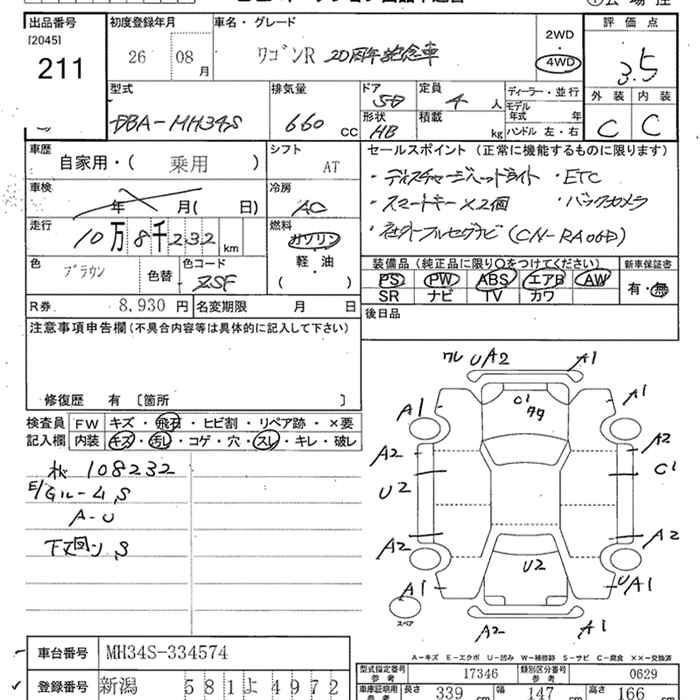 出品番号 初度登録年月 車名・グレード 2WD 評価点
[2045]
211 26 08 月 ワゴンR 20周年記念車 4WD 3.5
型式 排気量 ドア 5D 定員 4 人 ディーラー・並行 外装 内装
DBA-MH34S 660 CC 形状 HB 積載 kg モデル年式 年 C C
ハンドル 左・右
車歴 自家用・( 乗用 ) シフト AT セールスポイント (正常に機能するものに限ります)
・ディスチャージヘッドライト ・ETC
車検 年 月( 日) 冷房 AC ・スマートキー×2個 ・バックカメラ
走行 10万8千232 km 燃料 ガソリン
・社外フルセグナビ (CN-RA06D)
軽・油
( )
色 ブラウン 色替 色コード ZSF 装備品 (純正品に限り○をつけてください) 新車保証書
PS PW ABS エアB AW 有・無
SR ナビ TV カワ
R券 8,930 円 名変期限 月 日 後日品
注意事項申告欄 (不具合内容等は具体的に記入して下さい)
修復歴 有 [箇所 ]
検査員 FW キズ・飛石・ヒビ割・リペア跡・×要
記入欄 内装 キズ・汚し・コゲ・穴・スレ・キレ・破レ
108232
E/Gルーム,S
A-U
下回り,S
ワレ UA2 A1
A1 C1 A1
A2 A2
U2 C1
A2 A2
A1 U2 UA1
スペア
A2 A1
A-キズ E-エクボ U-凹み W-補修跡 S-サビ C-腐食 ××-交換済
車台番号 MH34S-334574
登録番号 新潟 581 よ 4972
型式指定番号 参考 17346 類別区分番号 参考 0629
車庫証明用 参考 長さ 339 cm 幅 147 cm 高さ 166 cm